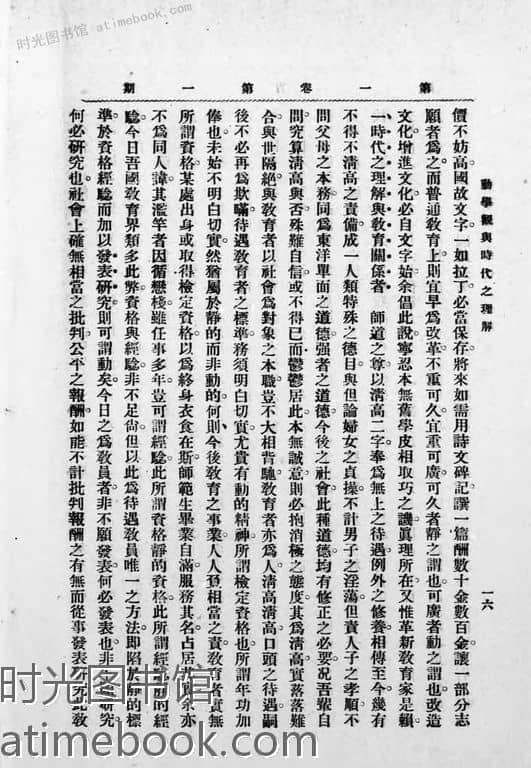 时光图书馆 atimebook.com
第一卷第一期
動學觀與時代之理解
一六
價不妨高國故文字一如拉丁必當保存將來如需用詩文碑記讓一篇酬數十金數百金讓一部分志
願者爲之而普通教育上則宜早爲改革不重可久宜重可廣可久者靜之謂也可廣者動之謂也改造
文化增進文化必自文字始余倡此說寧忍本無舊學皮相取巧之譏眞理所在又惟革新教育家是賴
一時代之理解與教育關係者 師道之尊以淸高二字奉爲無上之待遇例外之修養相傳至今幾有
不得不淸高之責備成一人類特殊之德目與但論婦女之貞操不計男子之淫蕩但責人子之孝順不
問父母之本務同爲東洋單面之道德强者之道德今後之社會此種道德均有修正之必要况吾輩自
問究算淸高與否殊難自信或不得已而鬱鬱居此本無誠意則必抱消極之態度其爲淸高實落落難
合與世隔絕與教育者以社會爲對象之本職豈不大相背馳教育者亦爲人淸高淸高口頭之待遇嗣
後不必再爲欺瞞待遇教育者之標準務須明白切實尤貴有動的精神所謂檢定資格也所謂年功加
俸也未始不明白切實然猶屬於靜的而非動的何則今後教育之事業人人登相當之責教育者實無
所謂資格某處出身或取得檢定資格以爲終身衣食在斯師範生畢業自滿服務其名占居
不爲同人諱其濫竽者因循戀棧雖任事多年豈可謂經驗此所謂資格靜的資格此所謂經 的經
驗今日吾國教育界類多此弊資格與經驗非不足尙但以此爲待遇教員唯一之方法即陷於靜的標
準於資格經驗而加以發表研究則可謂動矣今日之爲教員者非不願發表何必發表也非 研究
何必研究也社會上確無相當之批判公平之報酬如能不計批判報酬之有無而從事發表研究此教
时光图书馆
atimebook.com